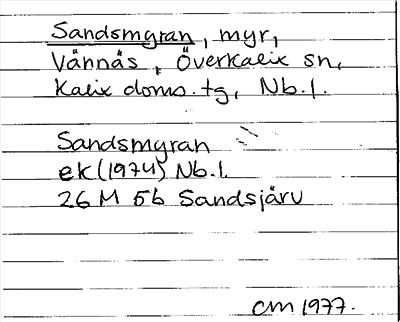 Sandsmyran, myr,
Vännäs, Överkalix sn,
Kalix doms. tg, Nb.l.
Sandsmyran
ek (1974) Nb.l.
26 M 5b Sandsjärv
CM 1977.